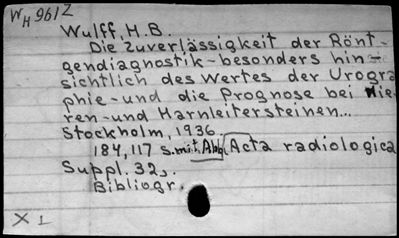 WH 961Z
Wulff, H.B.
Die Zuverlässigkeit der Rönt-
gendiagnostik - besonders hin-
sichtlich des Wertes der Urogra
phie - und die Prognose bei Nie-
ren- und Harnleitersteinen...
Stockholm, 1936.
184, 117 s. mit Abb. (Acta radiologica
Suppl. 32).
Bibliogr.
X 1